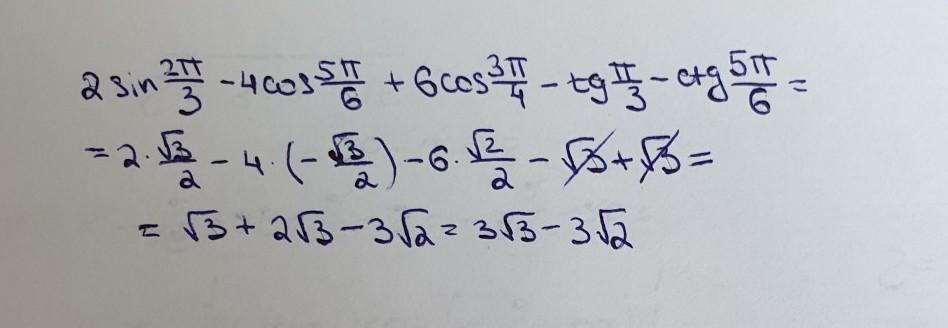 2 sin 2π/3 - 4 cos 5π/6 + 6 cos 3π/4 - tg π/3 - ctg 5π/6 =
= 2 · √3/2 - 4 · (-√3/2) - 6 · √2/2 - √3 + √3 =
= √3 + 2√3 - 3√2 = 3√3 - 3√2